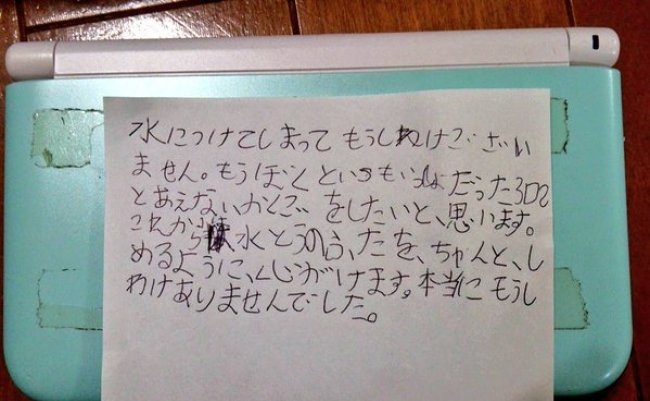 水につけてしまってもうしわけござい
ません。もうぼくといつもいっしょだった3DS
とあえないかくごをしたいと、思います。
これから水とうのふたを、ちゃんと、し
めるように、くじがけます。本当にもうし
わけありませんでした。